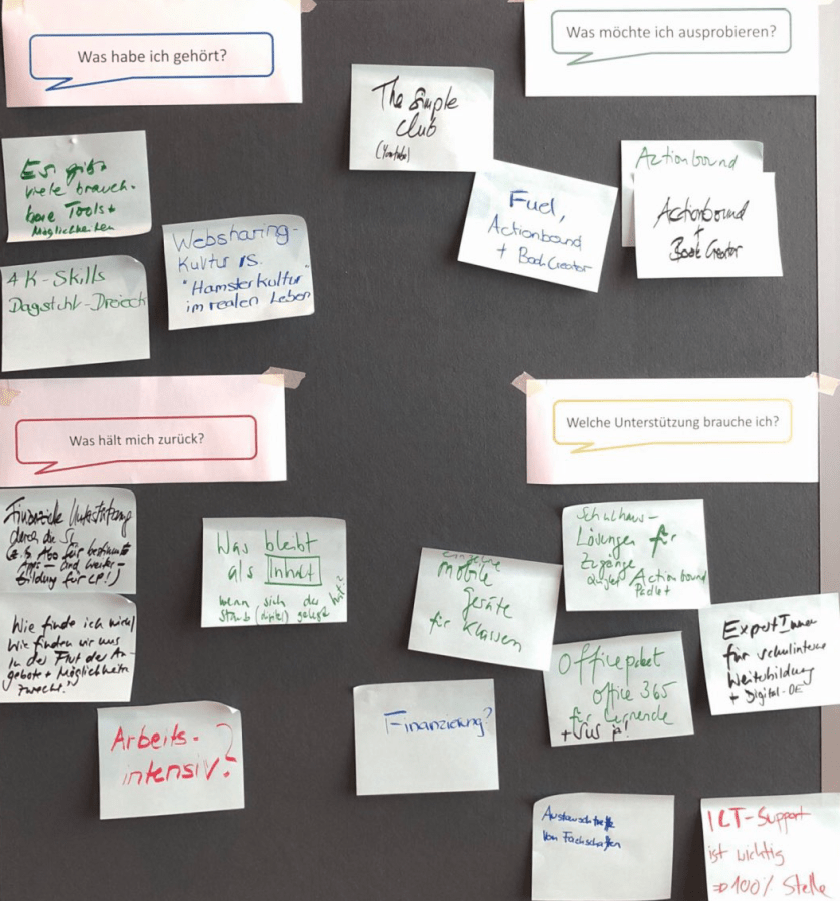 Was habe ich gehört?
Es gibt
viele brauch-
bare Tools +
Möglichkeiten
4 K-Skills
Dagstuhl-Dreieck
Websharing-
Kultur vs.
"Hamsterkultur"
im realen Leben
Was möchte ich ausprobieren?
The Simple
Club
(Youtube)
Fuel,
Actionbound
+ Book Creator
Actionbound
Actionbound
+
Book Creator
Was hält mich zurück?
Finanzielle Unterstützung
durch die SL
(z.B. Abo für bestimmte
Apps – und Weiter-
bildung für LP!)
Wie finde ich mich/
Wie finden wir uns
in der Flut der An-
gebote + Möglichkeiten
zurecht?
Arbeits-
intensiv?
Was bleibt
als Inhalt
wenn sich der
Staub (digital) gelegt hat?
Welche Unterstützung brauche ich?
Schulhaus-
Lösungen für
Zugänge
Actionbound
Padlet
einzelne
mobile
Geräte
für Klassen
Officepaket
Office 365
für Lernende
+ SuS ja!
ExpertInnen
für schulinterne
Weiterbildung
+ Digital-OE
Finanzierung?
Austauschtreffe
von Fachschaften
ICT-Support
ist wichtig
⇒ 100% Stelle